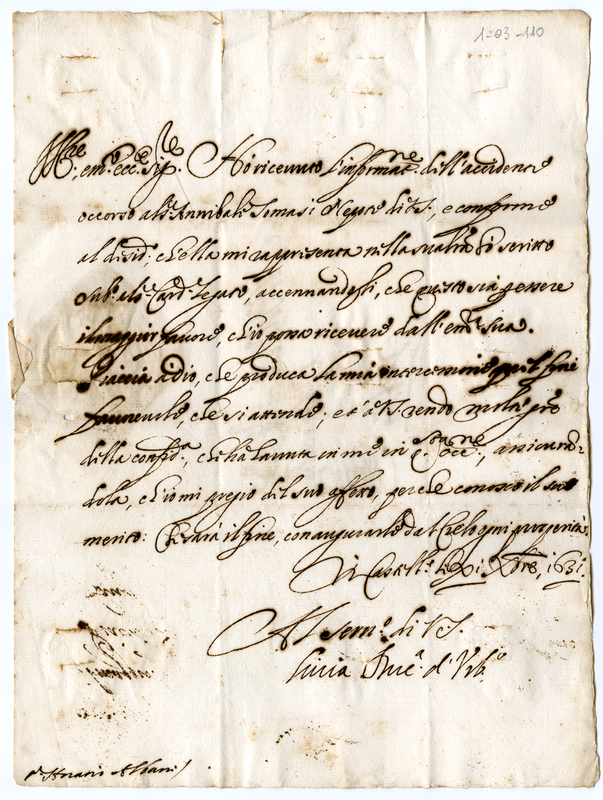 1-03-110
Ill.re em.to ecc.te sig.re Hò ricevuto l'informat.ne dell'accidente
occorso al s.r Annibale Tomasi Negote di V.S. e conforme
al desid.o ch'ella mi rappresenta nella sua hò scritto
sub.o al s.r Card. Legato, accennandogli, che questo sia p essere
il maggior favore, ch'io possa ricevere dall'em.za sua.
Piaccia a dio, che produca la mia intercessione quel fine
favorevole, che si attende; et à V.S. rendo molte gra.e
della confid.a, che hà havuta in me in q.sta occ.ne, assicuran-
dola, ch'io mi pregio del suo affetto, perche conosco il suo
merito: Et sarà il fine, con augurarle dal Cielo ogni prosperità.
Di Castell.o li Xbre, 1631.
Al serv.o di V.S.
Livia Duc.a d'Urb.o
s.r Horatio Albani